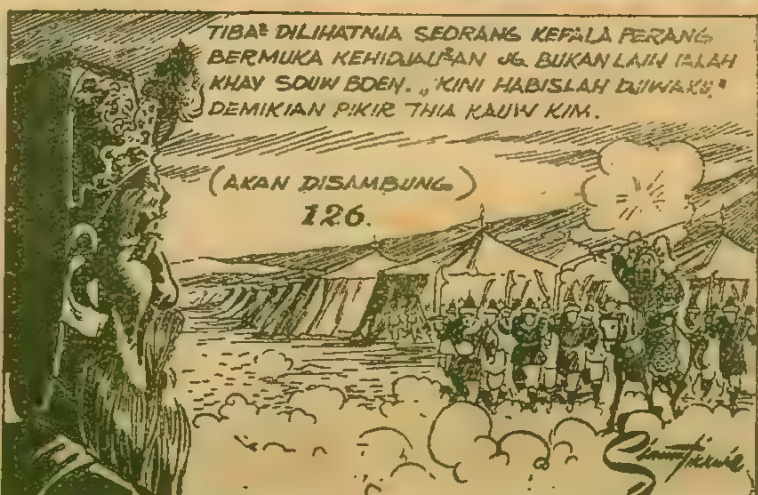 TIBA² DILIHATNJA SEORANG KEPALA PERANG
BERMUKA KEHIDJAU²AN JG. BUKAN LAIN IALAH
KHAY SOUW BOEN. „KINI HABISLAH DJIWAKU"
DEMIKIAN PIKIR THIA KAUW KIM.
(AKAN DISAMBUNG)
126.